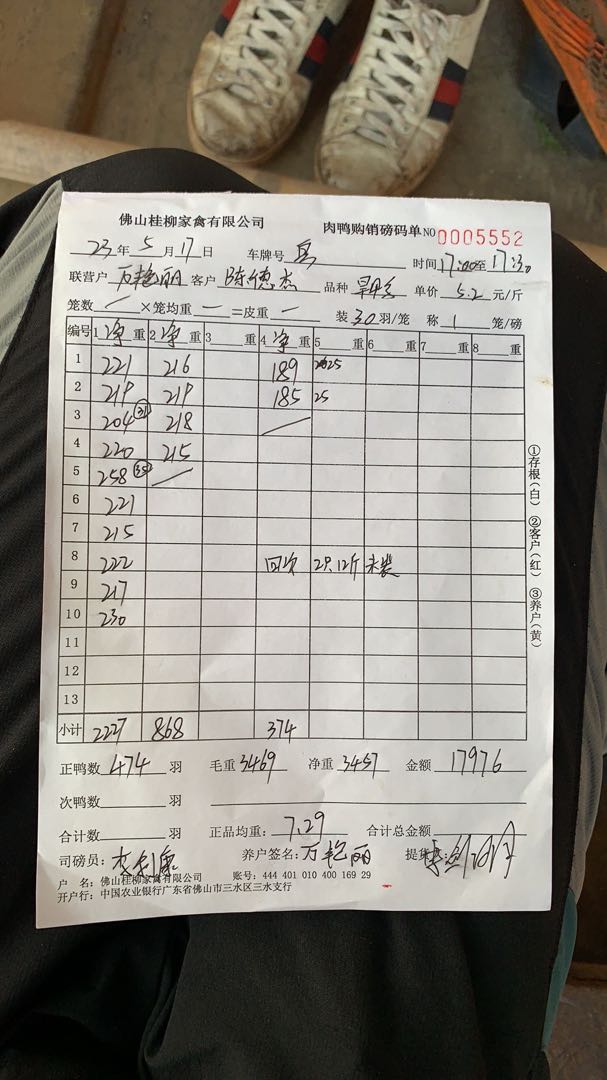 佛山桂柳家禽有限公司 肉鸭购销磅码单 NO 0005552
23年5月17日 车牌号 时间17:00至17:30
联营户万艳丽 客户陈德杰 品种 单价5.2元/斤
笼数/×笼均重—=皮重— 装30羽/笼 称1笼/磅
编号 1净重 2净重 3重 4净重 5重 6重 7重 8重
1 221 216 189 25
2 219 219 185 25
3 204 (31) 218 /
4 220 215
5 258 (35) /
6 221
7 215
8 222 回次 2只12斤未装
9 217
10 230
11
12
13
小计 2227 868 374
正鸭数474羽 毛重3469 净重3457 金额17976
次鸭数 羽
合计数 羽 正品均重:7.29 合计总金额
司磅员: 养户签名:万艳丽 提货
户 名:佛山桂柳家禽有限公司 账号:444 401 010 400 169 29
开户行:中国农业银行广东省佛山市三水区三水支行
①存根(白) ②客户(红) ③养户(黄)